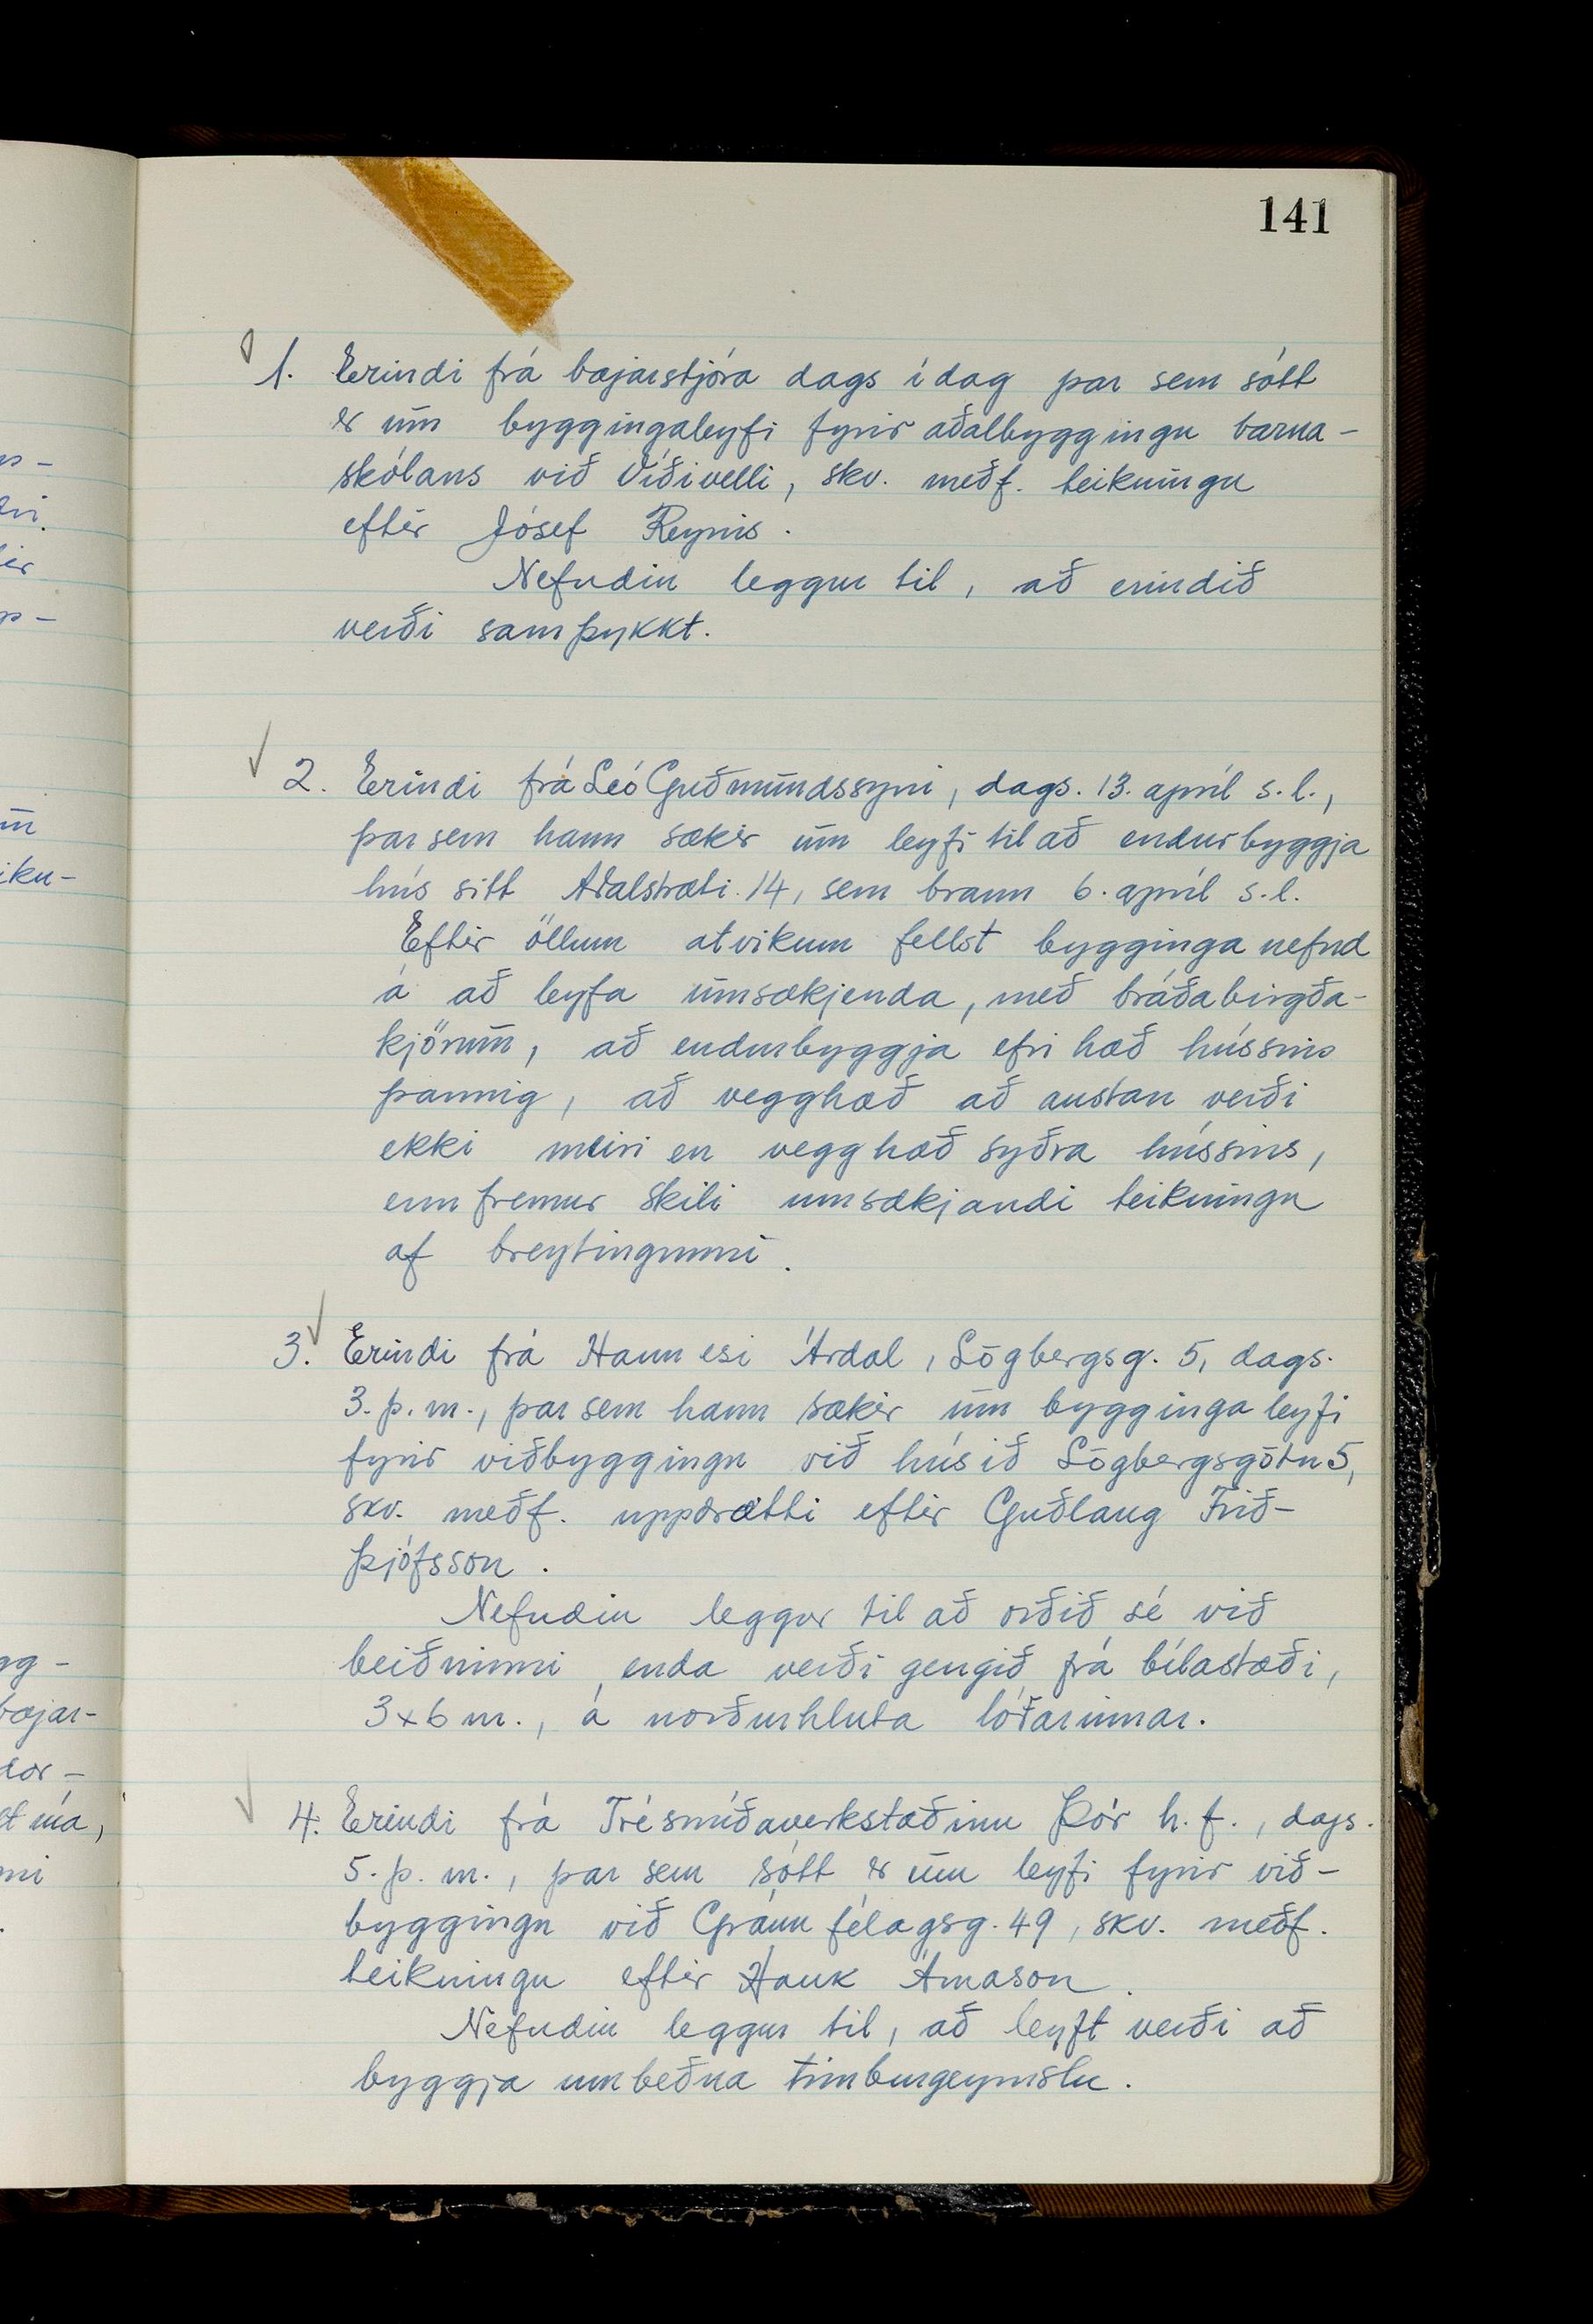 141
1. Erindi frá bæjarstjóra dags í dag þar sem sótt
er um byggingaleyfi fyrir aðalbyggingu barna-
skólans við Víðivelli, skv. meðf. teikningu
eftir Jósef Reynis.
Nefndin leggur til, að erindið
verði samþykkt.
2. Erindi frá Leó Guðmundssyni, dags. 13. apríl s.l.,
þar sem hann sækir um leyfi til að endurbyggja
hús sitt Aðalstræti 14, sem brann 6. apríl s.l.
Eftir öllum atvikum fellst bygginganefnd
á að leyfa umsækjenda, með bráðabirgða-
kjörum, að endurbyggja efri hæð hússins
þannig, að vegghæð að austan verði
ekki meiri en vegghæð syðra hússins,
ennfremur skili umsækjandi teikningu
af breytingunni.
3. Erindi frá Hannesi Árdal, Lögbergsg. 5, dags.
3. þ.m., þar sem hann sækir um byggingaleyfi
fyrir viðbyggingu við húsið Lögbergsgötu 5,
skv. meðf. uppdrætti eftir Guðlaug Frið-
þjófsson.
Nefndin leggur til að orðið sé við
beiðninni, enda verði gengið frá bílastæði,
3x6 m., á norðurhluta lóðarinnar.
4. Erindi frá Trésmíðaverkstæðinu Þór h.f., dags.
5. þ.m., þar sem sótt er um leyfi fyrir við-
byggingu við Gránufélagsg. 49, skv. meðf.
teikningu eftir Hauk Árnason.
Nefndin leggur til, að leyft verði að
byggja umbeðna timburgeymslu.